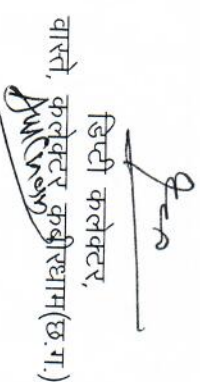 डिप्टी कलेक्टर,
वास्ते, कलेक्टर कबीरधाम(छ.ग.)